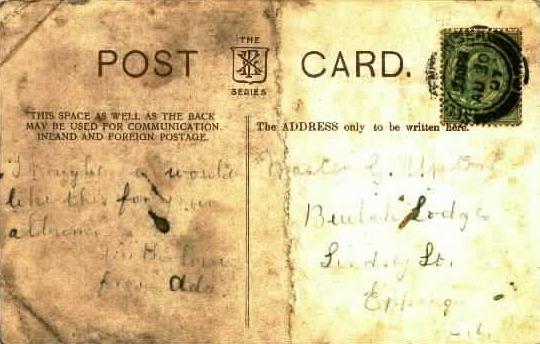 POST CARD.
THE
SERIES
THIS SPACE AS WELL AS THE BACK
MAY BE USED FOR COMMUNICATION.
INLAND AND FOREIGN POSTAGE.
The ADDRESS only to be written here.
I would
like this for your
album.
with love
from
Master G. Upton
Beulah Lodge
Lindsey St.
Epping